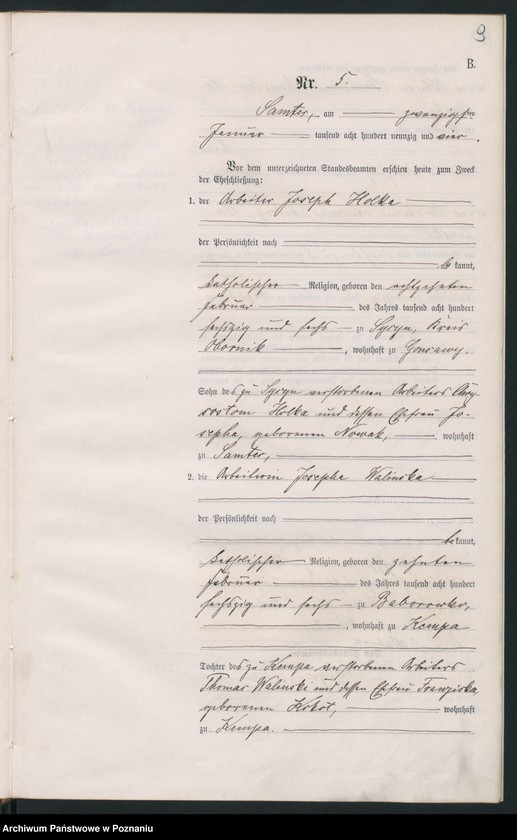 9
B.
Nr. 5.
Samter, am zwanzigsten
Januar tausend acht hundert neunzig und vier.
Vor dem unterzeichneten Standesbeamten erschien heute zum Zweck
der Eheschließung:
1. der Arbeiter Joseph Holka
der Persönlichkeit nach
be kannt,
katholischer Religion, geboren den achtzehnten
Februar des Jahres tausend acht hundert
sechszig und sechs zu Sycyn, Kreis
Obornik, wohnhaft zu
Sohn des zu Sycyn verstorbenen Arbeiters Chry-
sostom Holka und dessen Ehefrau Jo-
sepha, geborenen Nowak, wohnhaft
zu Samter,
2. die Arbeiterin Josepha Walinska
der Persönlichkeit nach
bekannt,
katholischer Religion, geboren den zehnten
Februar des Jahres tausend acht hundert
sechszig und sechs zu Baborowko,
, wohnhaft zu Kempa
Tochter des zu Kempa verstorbenen Arbeiters
Thomas Walinski und dessen Ehefrau Franziska,
geborenen Kokot, wohnhaft
zu Kempa.
Archiwum Państwowe w Poznaniu